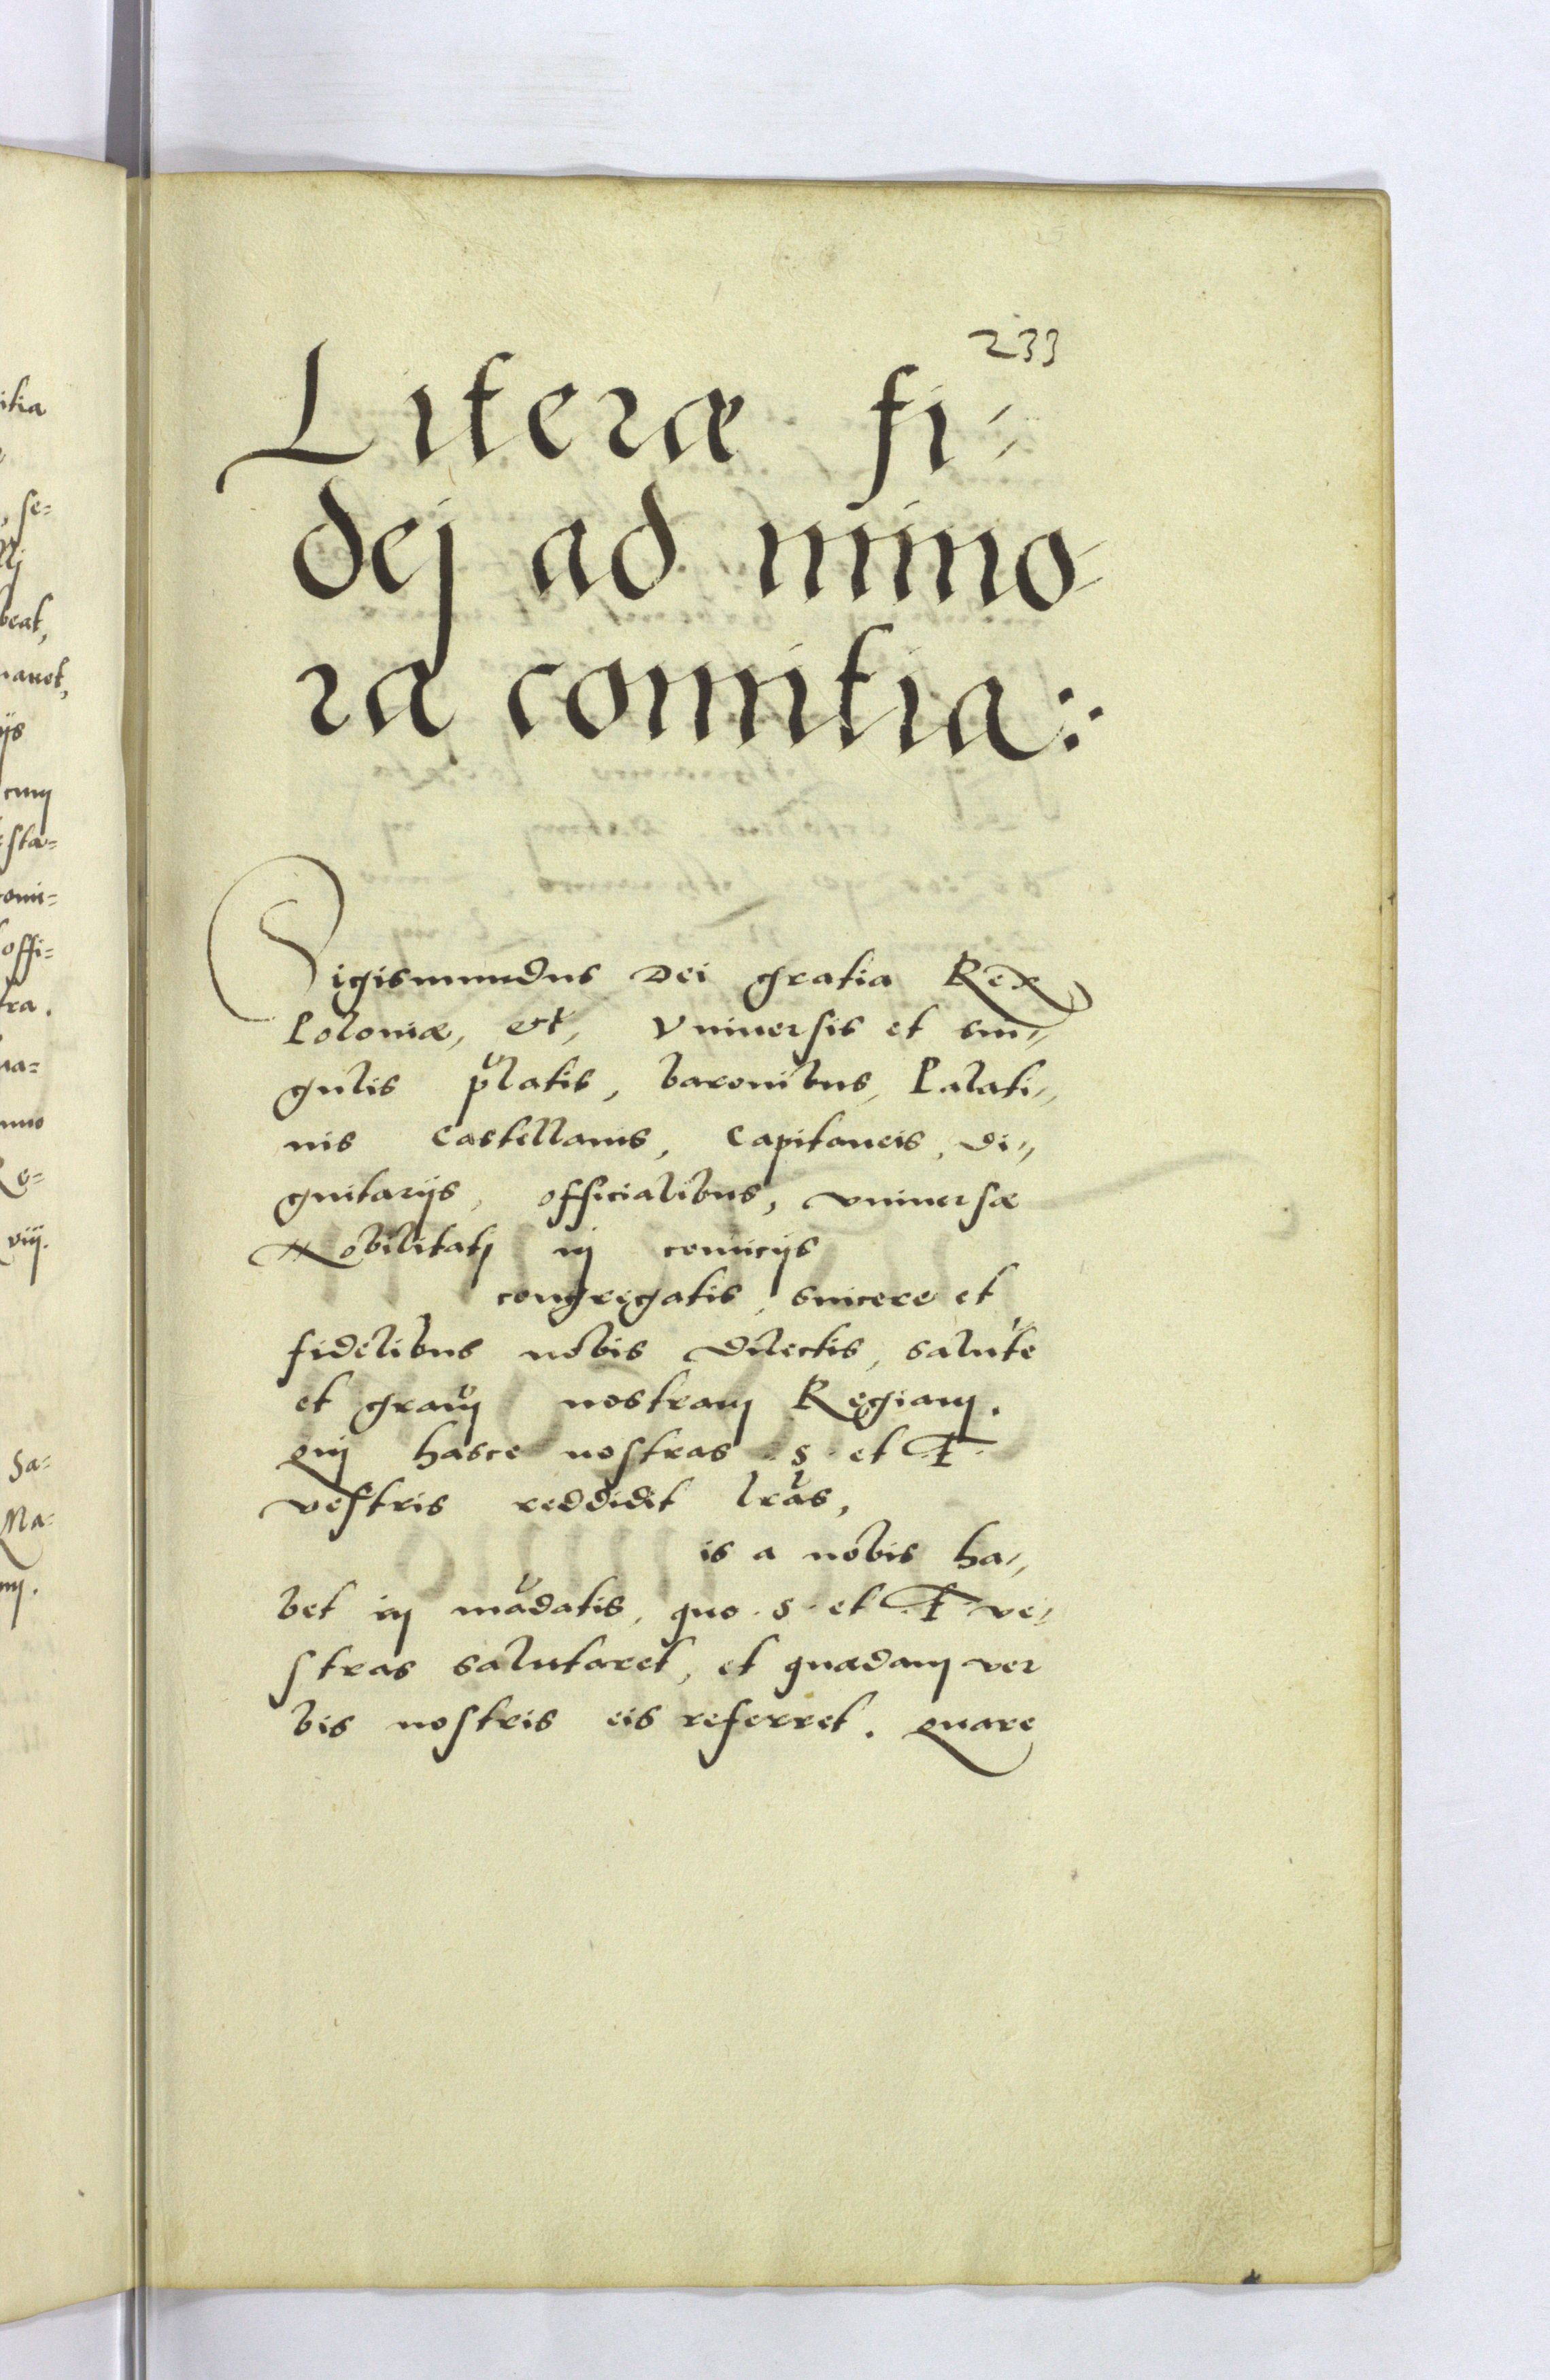 233
Literæ fi-
dej ad mino-
ra comitia:
Sigismundus Dei gratia Rex
Poloniæ, etc, Vniuersis et sin-
gulis p̃latis, baronibus, Palati-
nis Castellanis, Capitaneis, di-
gnitarijs, officialibus, vniuersæ
Nobilitatj in comicijs
congregatis, sincere et
fidelibus nobis dilectis, salutẽ
et gra͠m nostram Regiam.
Quj hasce nostras .S. et .F.
vestris reddidit lr͠as,
is a nobis ha-
bet in mãdatis, quo .S. et .F. ve-
stras salutaret, et quædam ver
bis nostris eis referret. Quare
itia
, se=
beat,
ijs
cum
sta=
comi=
offi=
tra.
na=
viij.
Sa=
Ma=